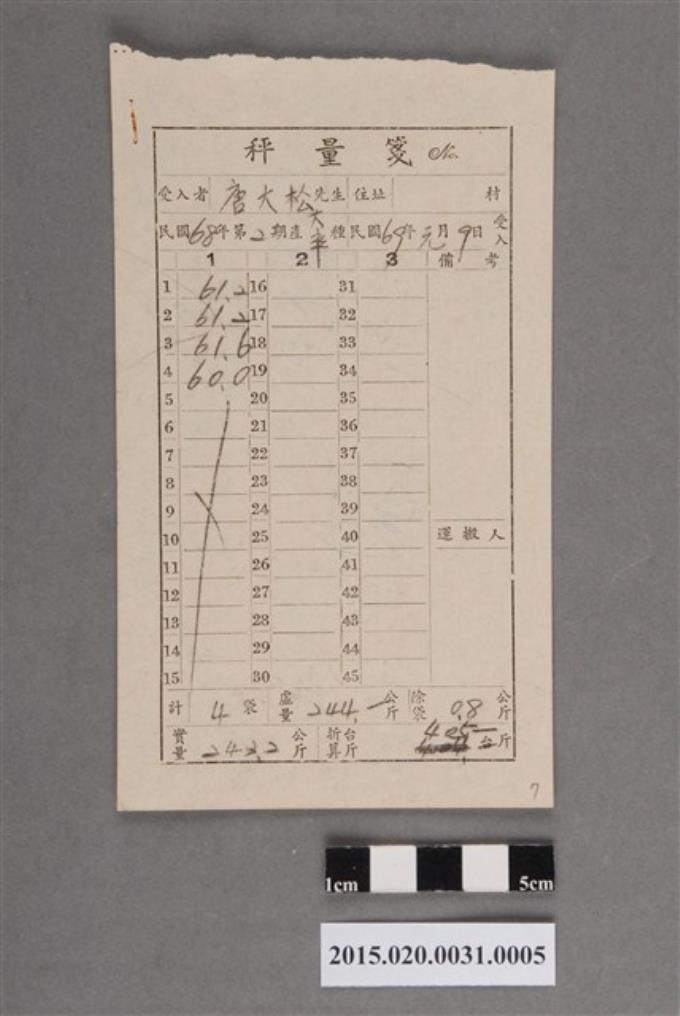 秤量箋 No.
受入者 唐大松先生 住址 村
民國68年第2期產 種 民國69年元月9日受入
1 2 3 備考
1 61.2 16 31
2 61.2 17 32
3 61.6 18 33
4 60.0 19 34
5 20 35
6 21 36
7 22 37
8 23 38
9 24 39
10 25 40 運搬人
11 26 41
12 27 42
13 28 43
14 29 44
15 30 45
計 4 袋 處量 244.- 公斤 除袋 0.8 公斤
實量 243.2 公斤 折算台斤 405- 台斤
7
1cm 5cm
2015.020.0031.0005